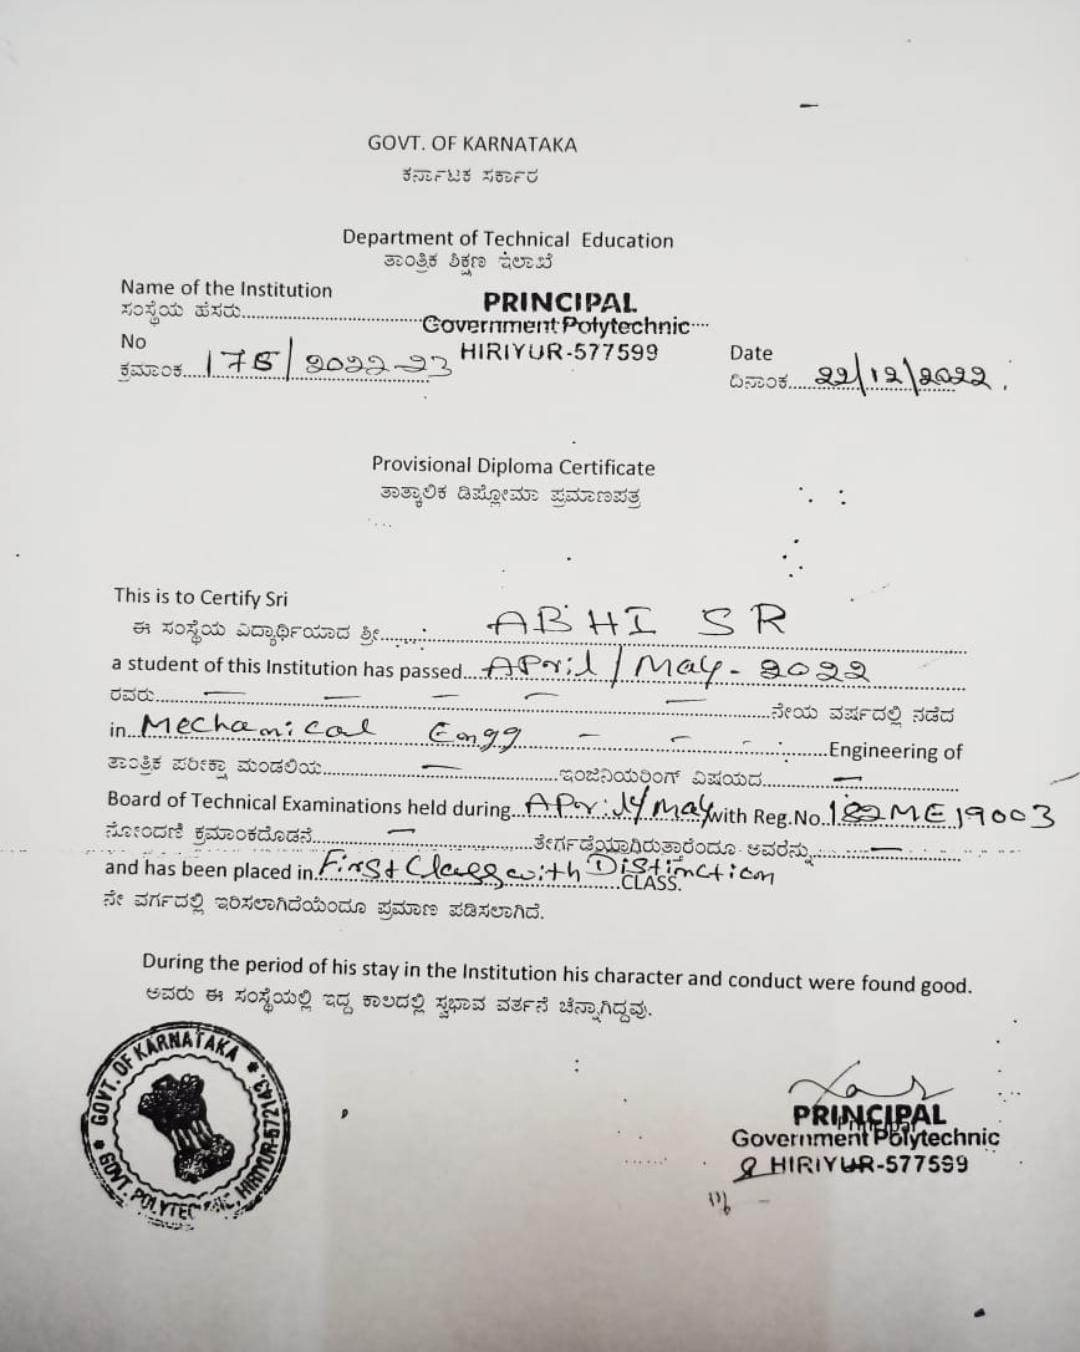 GOVT. OF KARNATAKA
ಕರ್ನಾಟಕ ಸರ್ಕಾರ
Department of Technical Education
ತಾಂತ್ರಿಕ ಶಿಕ್ಷಣ ಇಲಾಖೆ
Name of the Institution
ಸಂಸ್ಥೆಯ ಹೆಸರು
PRINCIPAL
Government Polytechnic
HIRIYUR-577599
No
ಕ್ರಮಾಂಕ 175/2022-23
Date
ದಿನಾಂಕ 22/12/2022
Provisional Diploma Certificate
ತಾತ್ಕಾಲಿಕ ಡಿಪ್ಲೋಮಾ ಪ್ರಮಾಣಪತ್ರ
This is to Certify Sri
ಈ ಸಂಸ್ಥೆಯ ವಿದ್ಯಾರ್ಥಿಯಾದ ಶ್ರೀ ABHI SR
a student of this Institution has passed April/May-2022
ರವರು ನೇಯ ವರ್ಷದಲ್ಲಿ ನಡೆದ
in Mechanical Engg Engineering of
ತಾಂತ್ರಿಕ ಪರೀಕ್ಷಾ ಮಂಡಲಿಯ ಇಂಜಿನಿಯರಿಂಗ್ ವಿಷಯದ
Board of Technical Examinations held during April/May with Reg.No. 182ME19003
ನೋಂದಣಿ ಕ್ರಮಾಂಕದೊಡನೆ ತೇರ್ಗಡೆಯಾಗಿರುತ್ತಾರೆಂದೂ ಅವರನ್ನು
and has been placed in First Class with Distinction CLASS.
ನೇ ವರ್ಗದಲ್ಲಿ ಇರಿಸಲಾಗಿದೆಯೆಂದೂ ಪ್ರಮಾಣ ಪಡಿಸಲಾಗಿದೆ.
During the period of his stay in the Institution his character and conduct were found good.
ಅವರು ಈ ಸಂಸ್ಥೆಯಲ್ಲಿ ಇದ್ದ ಕಾಲದಲ್ಲಿ ಸ್ವಭಾವ ವರ್ತನೆ ಚೆನ್ನಾಗಿದ್ದವು.
GOVT. OF KARNATAKA
GOVT. POLYTECHNIC, HIRIYUR-572143.
PRINCIPAL
Principal
Government Polytechnic
HIRIYUR-577599